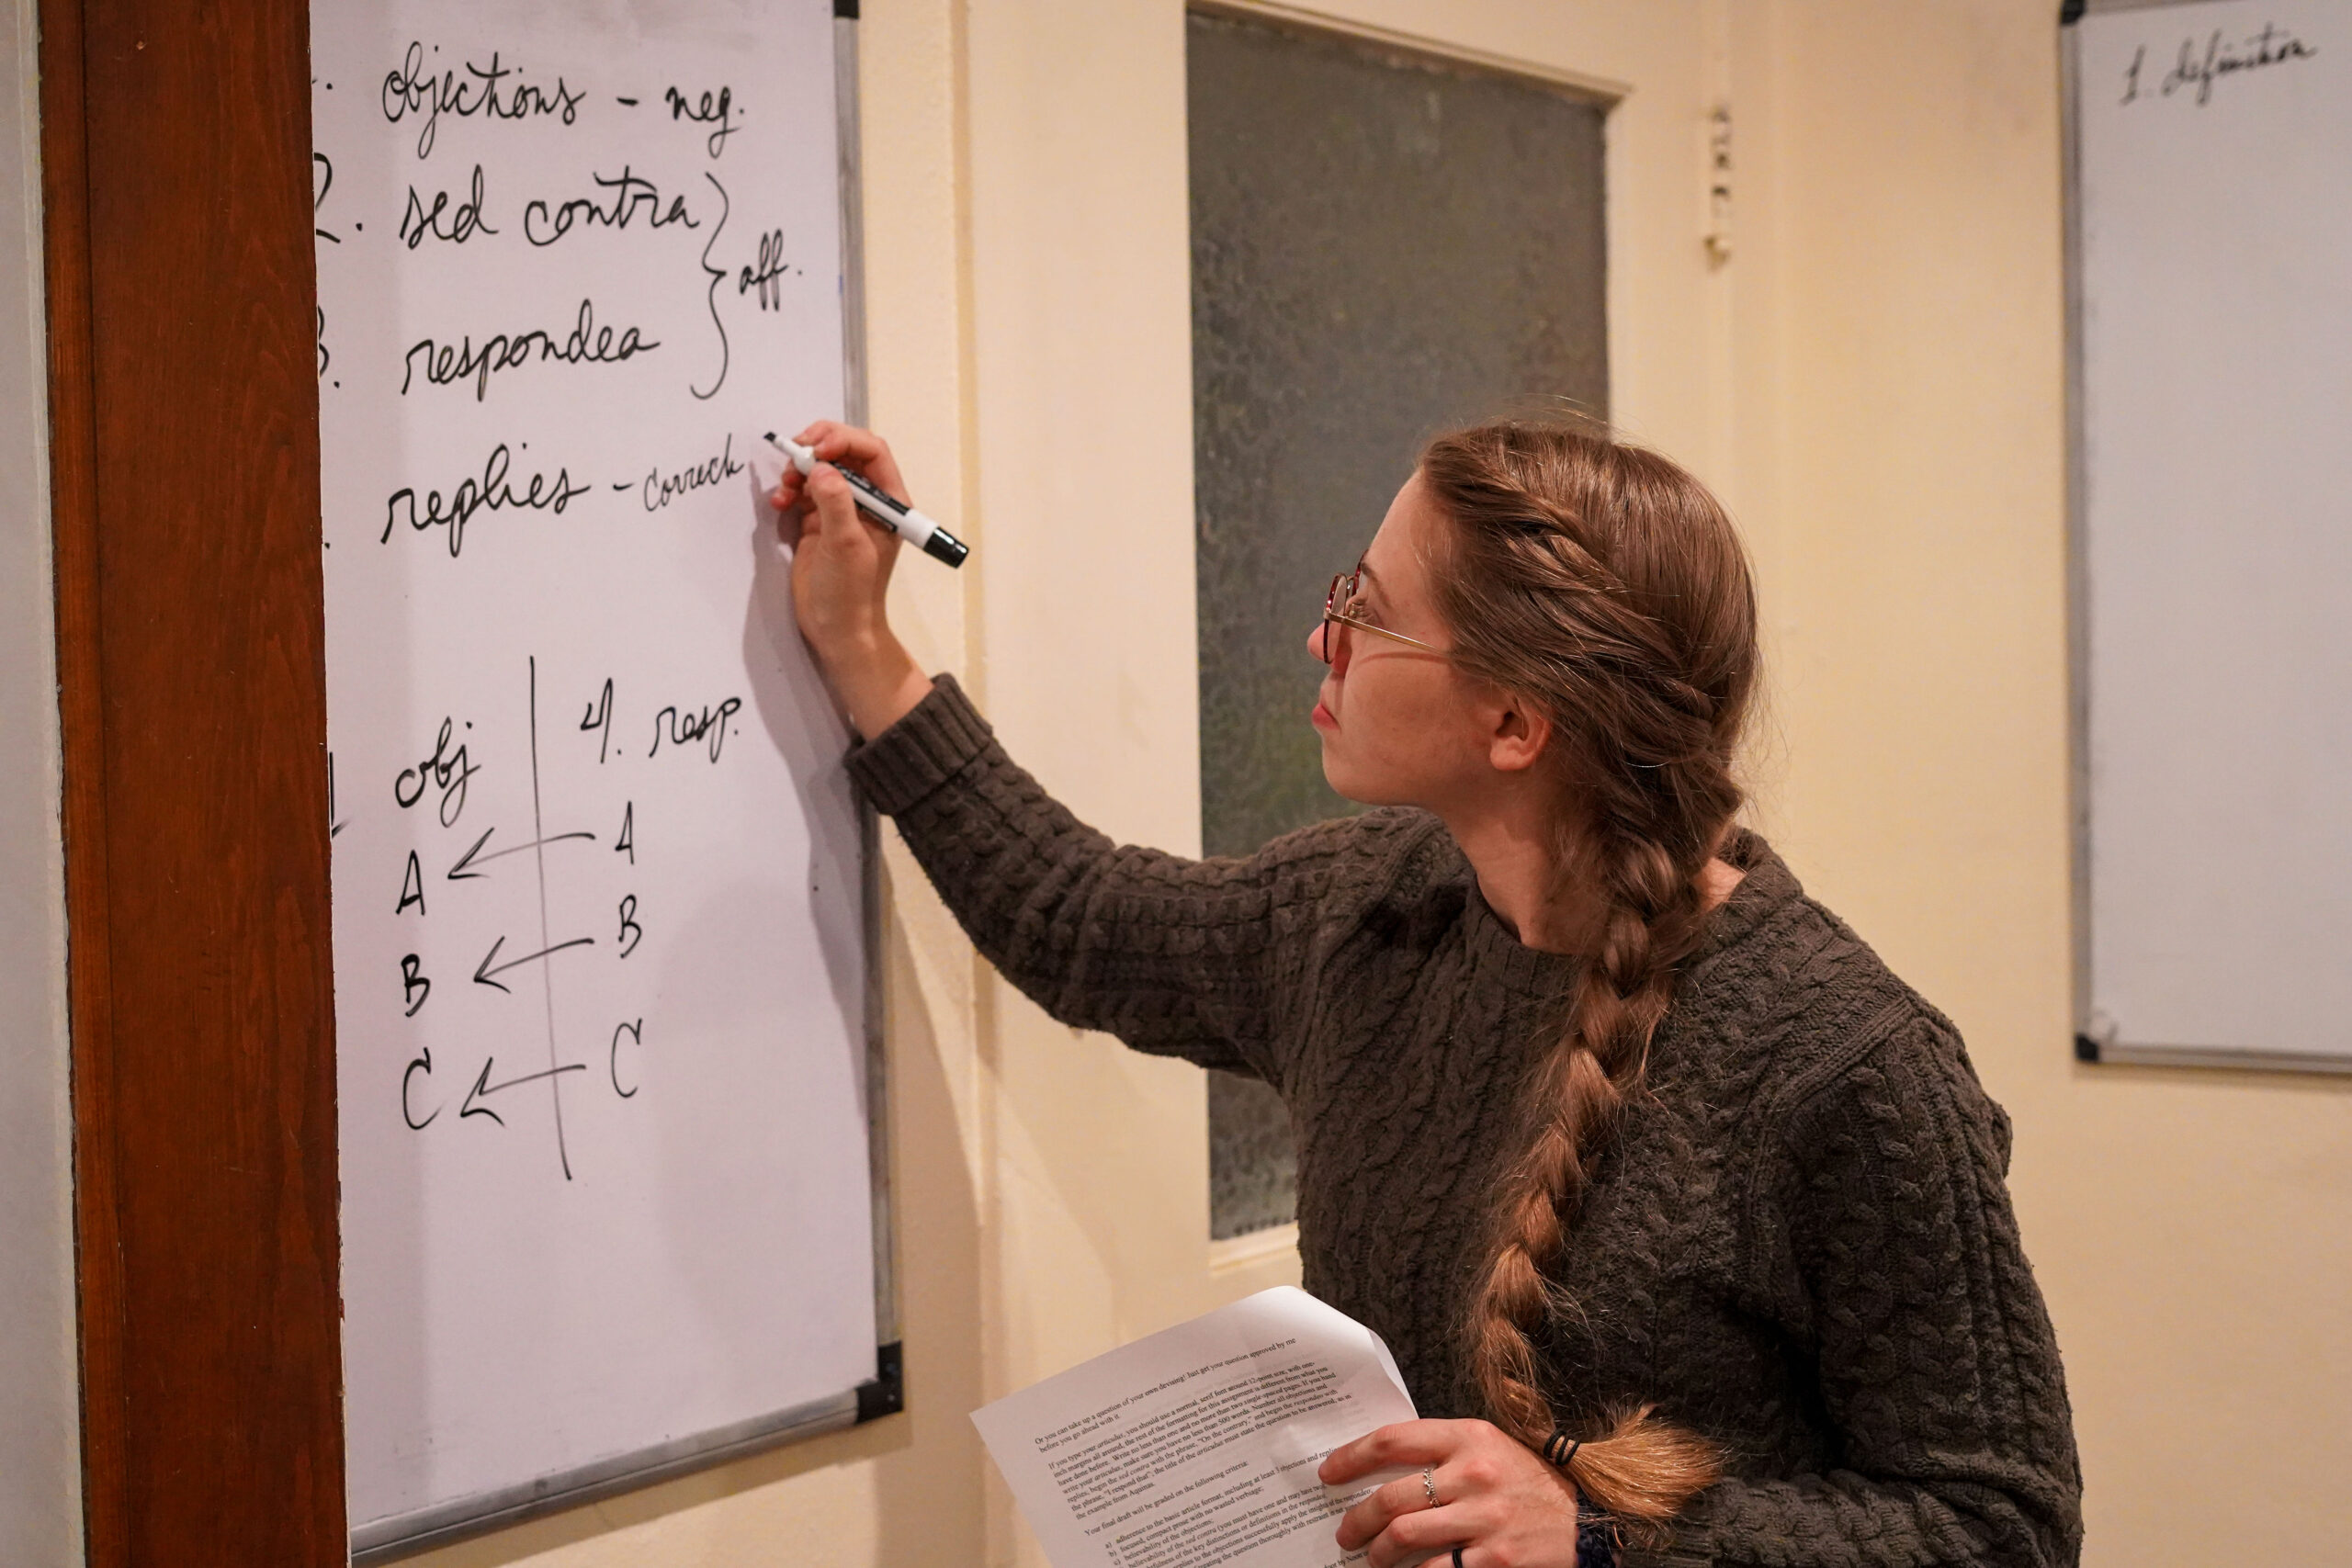 objections - neg.
2. sed contra
aff.
3. respondea
replies - correct
obj
4. resp.
A A
B B
C C
1. definition
Or you can take up a question of your own devising! Just get your question approved by me
before you go ahead with it.
If you type your articulus, you should use a normal, serif font around 12-point size, with one-
inch margins all around. the rest of the formatting for this assignment is different from what you
have done before. Write no less than one and no more than two single-spaced pages. If you hand
write your articulus, make sure you have no less than 500 words. Number all objections and
replies, begin the sed contra with the phrase, "On the contrary," and begin the respondeo with
the phrase, "I respond that"; the title of the articulus must state the question to be answered, as in
the example from Aquinas.
Your final draft will be graded on the following criteria:
a) adherence to the basic article format, including at least 3 objections and replies
b) focused, compact prose with no wasted verbiage;
c) believability of the objections;
believability of the sed contra (you must have one and may have two
of the key distinctions or definitions in the respondeo
replies to the objections successfully apply the insights of the respondeo
treating the question thoroughly with